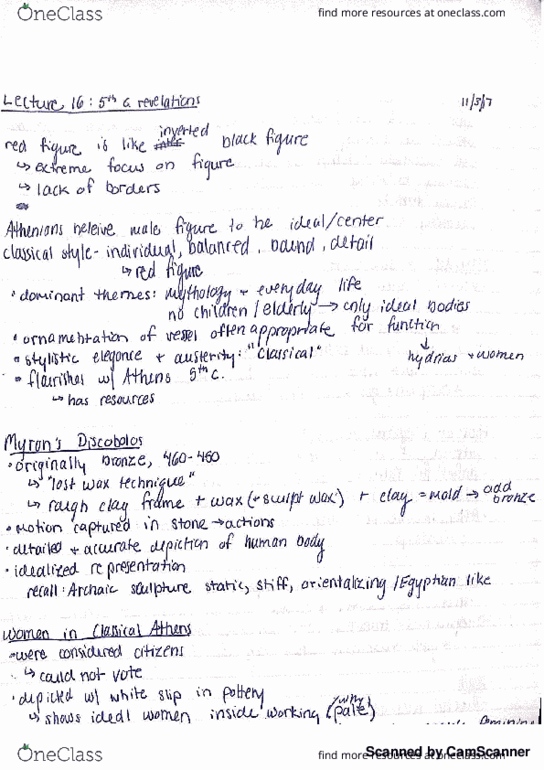 OneClass
find more resources at oneclass.com
Lecture 16: 5th c revelations 11/3/17
red figure is like inverted black figure
↳ extreme focus on figure
↳ lack of borders
Athenians beleive male figure to be ideal/center
classical style- individual, balanced, bound, detail
↳ red figure
• dominant themes: mythology + everyday life
no children/elderly → only ideal bodies
• ornamentation of vessel often appropriate for function
↓
hydrias + women
• stylistic elegance + austerity: "Classical"
• flourishes w/ Athens 5th c.
↳ has resources
Myron's Discobolos
• originally bronze, 460-450
↳ "lost wax technique"
↳ rough clay frame + wax (+ sculpt wax) + clay = mold → add bronze
• motion captured in stone → actions
• detailed + accurate depiction of human body
• idealized representation
recall: Archaic sculpture static, stiff, orientalizing/Egyptian like
Women in Classical Athens
• were considered citizens
↳ could not vote
• depicted w/ white slip in pottery
↳ shows ideal women inside working (why pale)
OneClass
find more resources at oneclass.com
Scanned by CamScanner